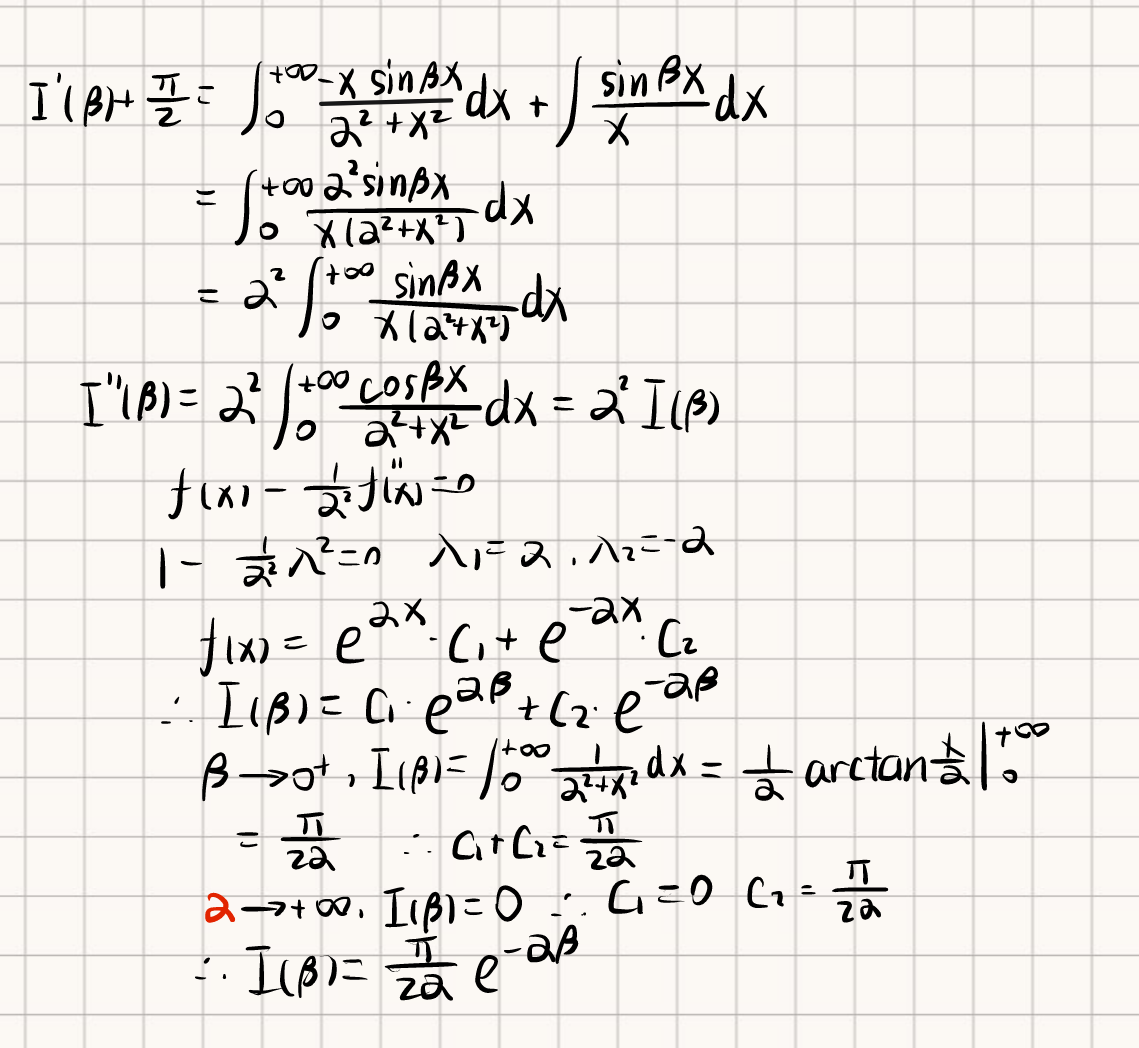 I'(β)+ π/2 = ∫₀^{+∞} (-x sinβx)/(a²+x²) dx + ∫ (sinβx)/x dx
= ∫₀^{+∞} (a² sinβx)/(x(a²+x²)) dx
= a² ∫₀^{+∞} (sinβx)/(x(a²+x²)) dx
I''(β) = a² ∫₀^{+∞} (cosβx)/(a²+x²) dx = a² I(β)
f(x) - (1/a²) f''(x) = 0
1 - (1/a²) λ² = 0   λ₁ = a , λ₂ = -a
f(x) = e^{ax} · C₁ + e^{-ax} · C₂
∴ I(β) = C₁ · e^{aβ} + C₂ · e^{-aβ}
β → 0⁺ , I(β) = ∫₀^{+∞} 1/(a²+x²) dx = (1/a) arctan (x/a) |₀^{+∞}
= π/(2a)   ∴ C₁ + C₂ = π/(2a)
a → +∞ , I(β) = 0 ∴ C₁ = 0  C₂ = π/(2a)
∴ I(β) = (π/(2a)) e^{-aβ}